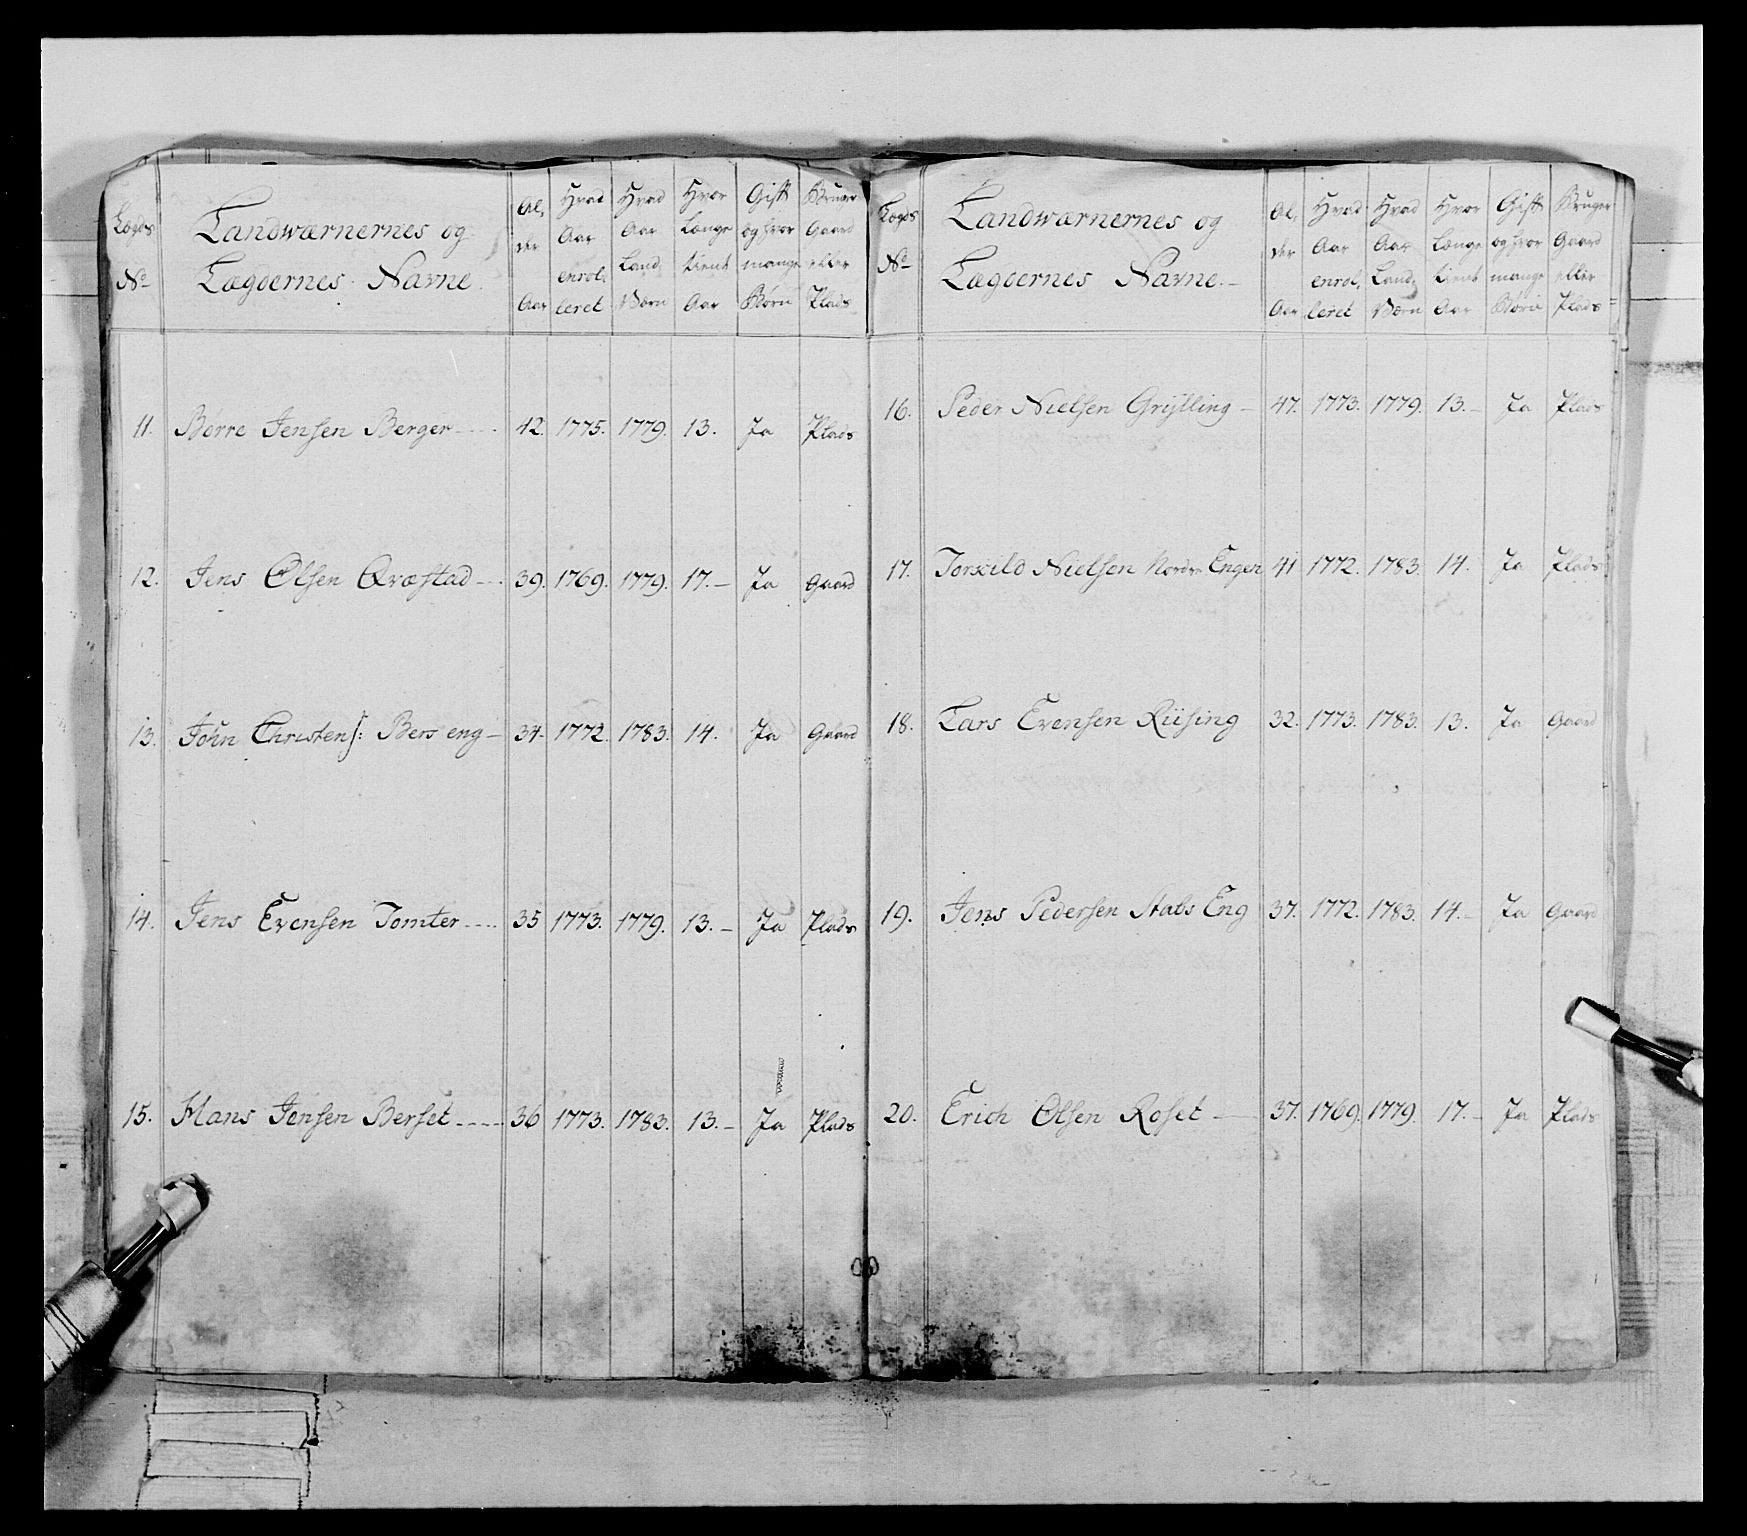 Lægds No
Landwærnernes og
Lægdernes Navne.
Al, der Aar
Hvad Aar enrol, leret
Hvad Aar Land, Værn
Hvor Længe tient Aar
Gift og hvor mange Børn
Bruger Gaard eller Plads
11. Børre Jensen Berger 42. 1775. 1779. 13. Ja Plads
12. Jens Olsen Qvæstad 39. 1769. 1779. 17. Ja Gaard
13. John Christens: Bers eng 34. 1772. 1783. 14. Ja Gaard
14. Jens Evensen Tomter 35 1773. 1779. 13. Ja Plads
15. Hans Jensen Berset 36 1773. 1783. 13. Ja Plads
Lægds No
Landwærnernes og
Lægdernes Navne.
Al, der Aar
Hvad Aar enrol, leret
Hvad Aar Land, Værn
Hvor Længe tient Aar
Gift og hvor mange Børn
Bruger Gaard eller Plads
16. Peder Nielsen Grÿlling 47. 1773. 1779. 13. Ja Plads
17. Torkild Nielsen Nordre Engen 41 1772. 1783. 14. Ja Plads
18. Lars Evensen Riising 32. 1773. 1783. 13. Ja Gaard
19. Jens Pedersen Stabs Eng 37. 1772. 1783. 14. Ja Gaard
20. Erich Olsen Roset 37. 1769. 1779. 17. Ja Plads